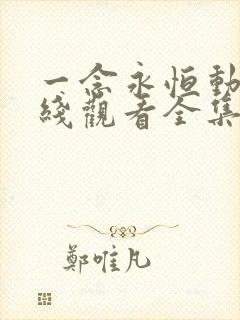 一念永恒動
綫觀看全集
鄭唯凡